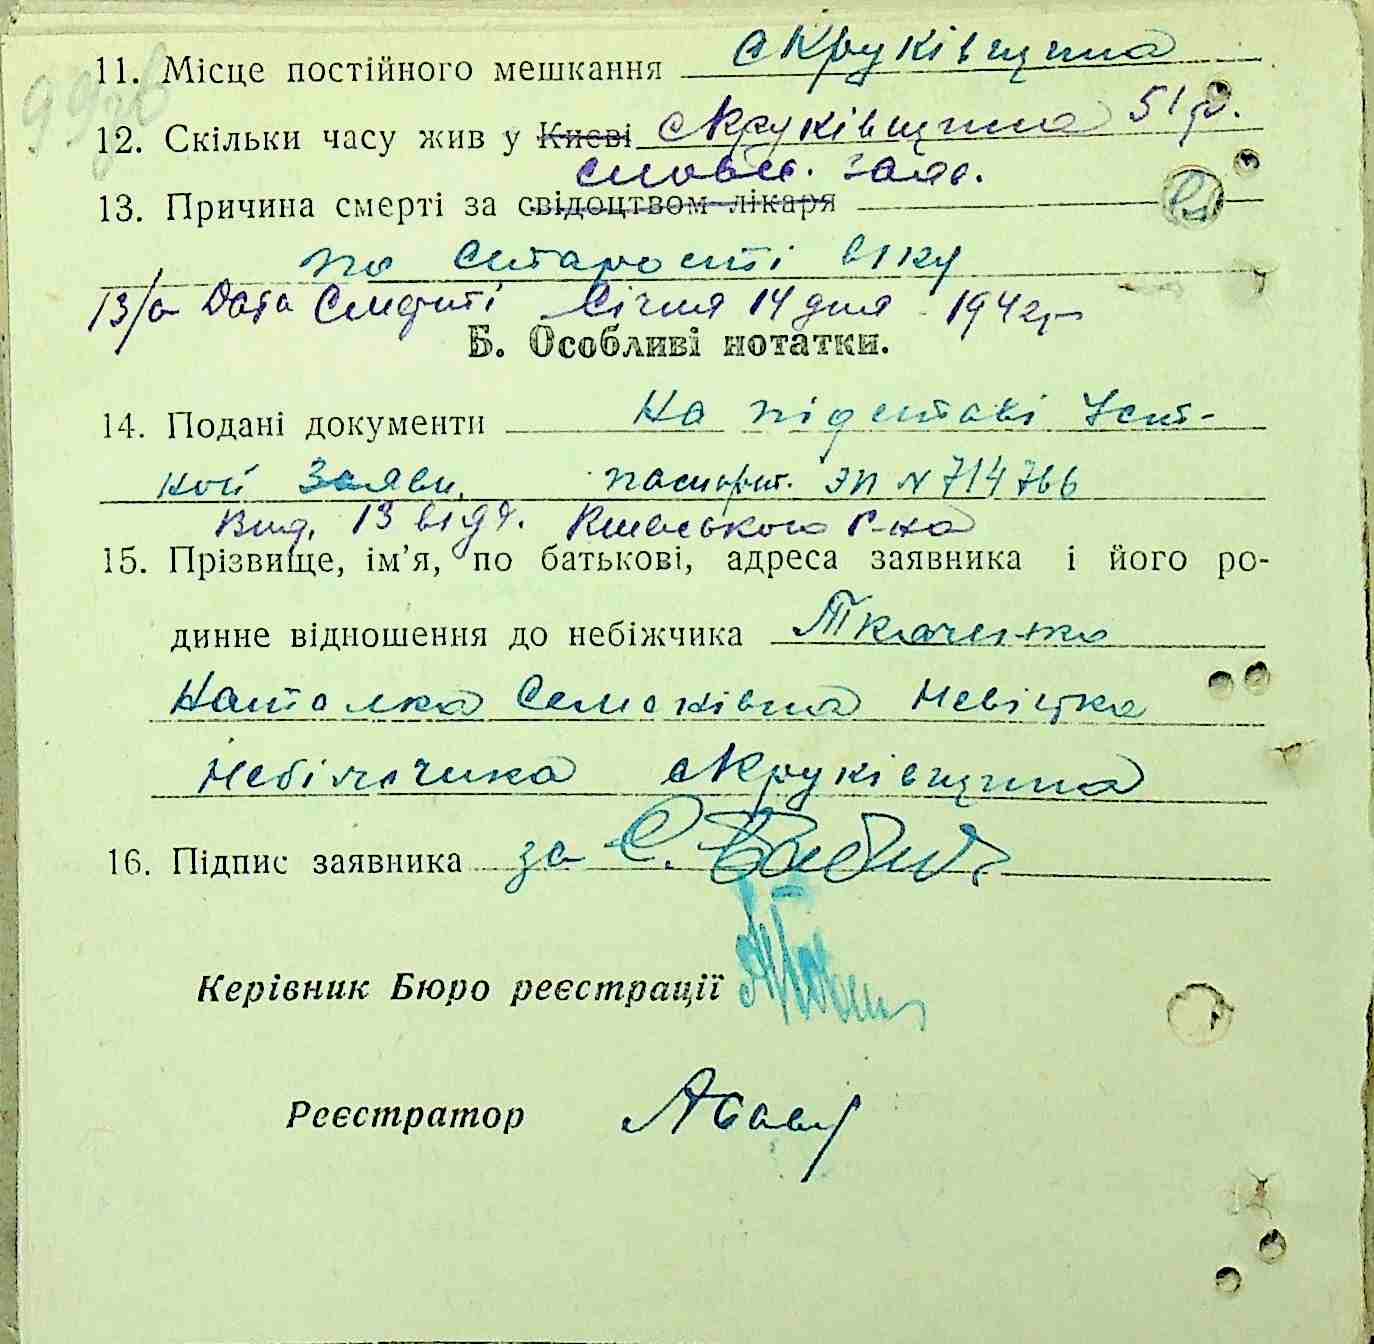 99зв
11. Місце постійного мешкання с Круківщина
12. Скільки часу жив у Києві с Круківщина 51 р.
словес. заяв.
13. Причина смерті за свідоцтвом лікаря
по старості віку
13/а Дата Смерті Січня 14 дня 1942 р
Б. Особливі нотатки.
14. Подані документи На підставі Уст-
ной Заяви. паспорт. ЭП № 714766
Вид. 13 відд. Києвського Р-на
15. Прізвище, ім’я, по батькові, адреса заявника і його ро-
динне відношення до небіжчика Ткаченко
Наталка Семенівна Невістка
Небіжчика с Круківщина
16. Підпис заявника за С.
Керівник Бюро реєстрації
Реєстратор